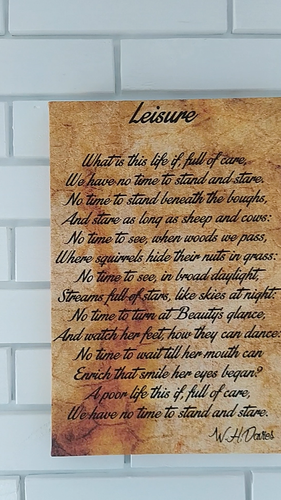 Leisure
What is this life if, full of care,
We have no time to stand and stare.
No time to stand beneath the boughs,
And stare as long as sheep and cows:
No time to see, when woods we pass,
Where squirrels hide their nuts in grass:
No time to see, in broad daylight,
Streams full of stars, like skies at night:
No time to turn at Beauty's glance,
And watch her feet, how they can dance:
No time to wait till her mouth can
Enrich that smile her eyes began?
A poor life this if, full of care,
We have no time to stand and stare.
W.H.Davies